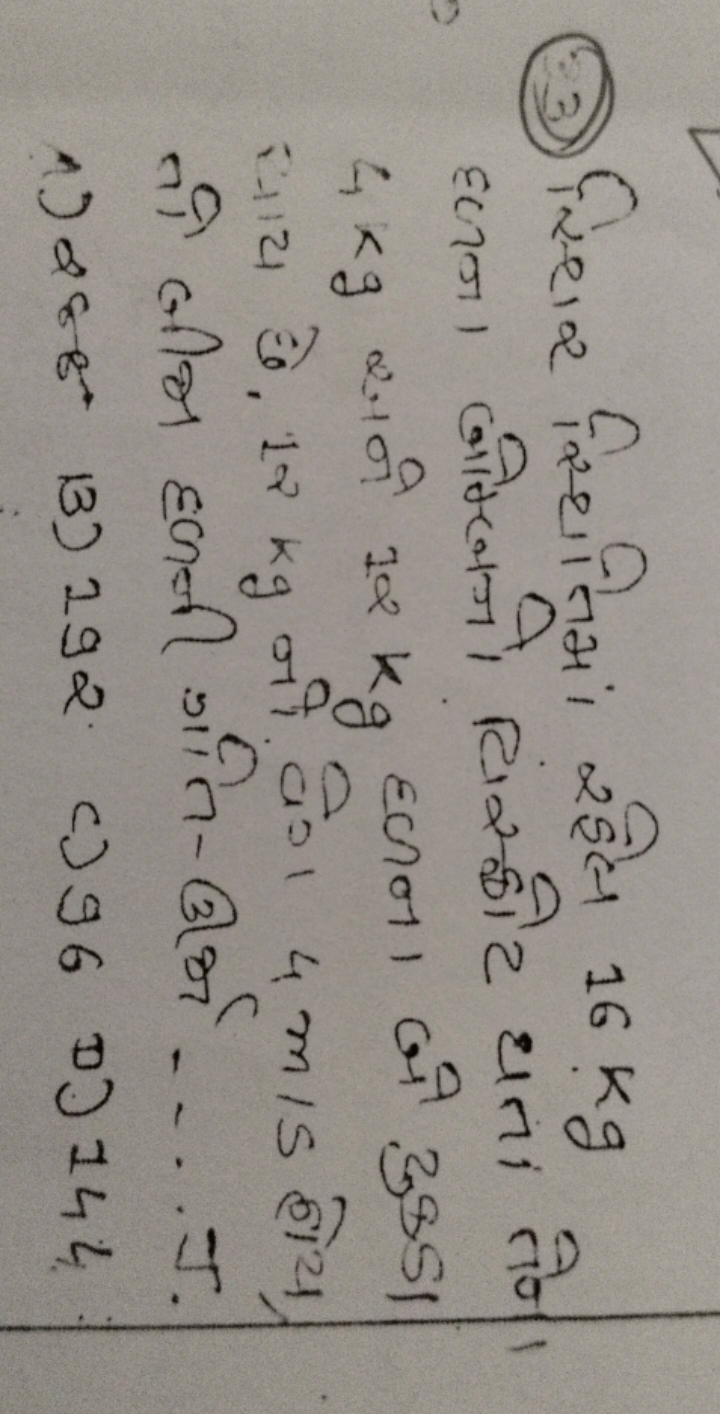 33 સ્થિર સ્થિતિમાં રહેલ 16 kg
દળના બોમ્બનો વિસ્ફોટ થતાં તેના
4 kg અને 12 kg દળના બે ટુકડા
થાય છે, 12 kg નો વેગ 4 m/s હોય,
તો બીજા દળની ગતિ-ઊર્જા - - . . J.
A) ૨૮૮ B) 192 C) 96 D) 144